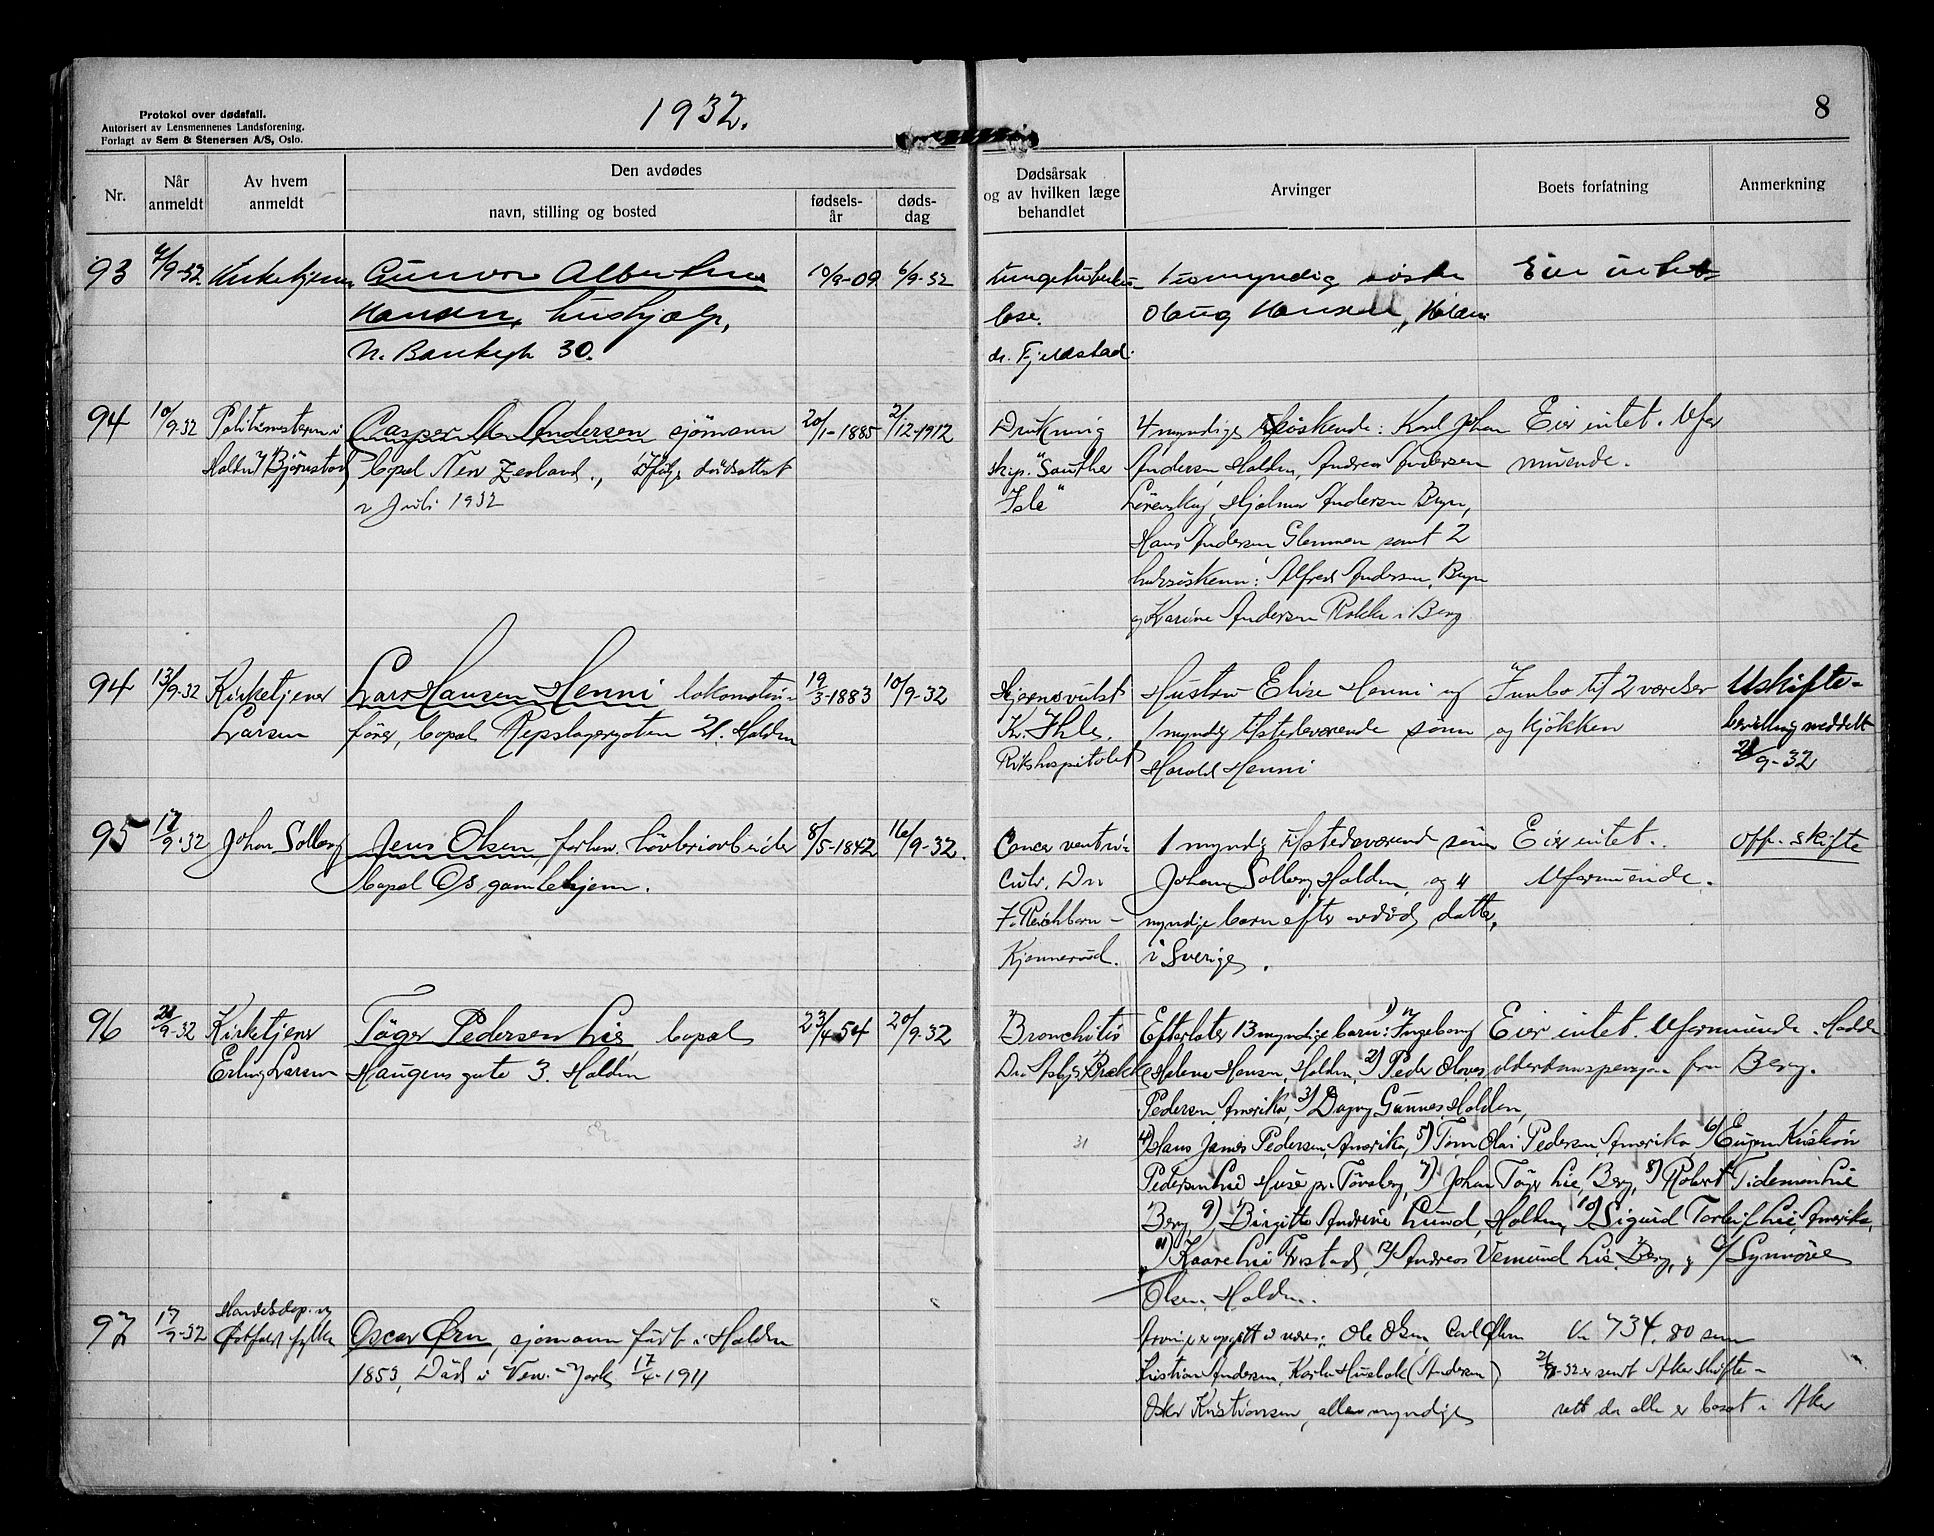 Protokol over dødsfall.
Autorisert av Lensmennenes Landsforening.
Forlagt av Sem & Stenersen A/S, Oslo.
1932.
8
Nr.
Når anmeldt
Av hvem anmeldt
Den avdødes
navn, stilling og bosted
fødsels-år
døds-dag
Dødsårsak og av hvilken læge behandlet
Arvinger
Boets forfatning
Anmerkning
93 7/9-32. Kirketjenern
Gunvor Albertine
Hansen, hushjælp,
N. Bankegt 30.
10/9-09 6/9-32
Lungetuberku-
lose.
dr. Fjeldstad.
1 umyndig søster
Olaug Hansen, Halden
Eier intet
94 10/9-32 Politimesteren i
Halden v/ Bjørnstad
Casper A Andersen sjømann
bopel New Zealand., ifølge dødsattest
2 Juli 1932
20/1-1885 2/12-1912
Drukning
skip. "Souther
Isle"
4 myndige søskende: Karl Johan
Andersen, Halden, Andrea Andersen
Lörenskog, Hjalmar Andersen Bryn,
Hans Andersen Glemmen samt 2
halvsøsken: Alfred Andersen, Bryn
og Karine Andersen Rokke i Berg
Eier intet. Ufor
muende.
94 13/9-32 Kirketjener
Larsen
Lars Hansen Henni lokomotiv-
fører, bopel Repslagergaten 21. Halden
19/3-1883 10/9-32
Hjernesvulst
Kr. Ihle.
Rikshospitalet
Hustru Elise Henni og
1 myndig tilstedeværende sønn
Harald Henni
Innbo til 2 værelser
og kjøkken
Uskifte-
bevilling meddelt
21/9-32
95 17/9-32 Johan Solberg
Jens Olsen, forhen. høvleriarbeider
bopel Os gamlehjem.
8/5-1842 16/9-32.
Cancer ventri-
culi. Dr.
F. Reichborn-
Kjennerud.
1 myndig tilstedeværend sønn
Johan Solberg, Halden, og 4
myndige barn efter avdød datter,
i Sverige.
Eier intet.
Uformuende.
Off. skifte
96 21/9-32 Kirketjener
Erling Larsen
Töger Pedersen Lie bopel
Haugens gate 3. Halden
23/4 54 20/9-32
Bronchitis
Dr. Asbj. Bræk
31
Efterlater 13 myndige barn: 1) Ingeborg
Helene Hansen, Halden, 2) Peder Olaves
Pedersen, Amerika, 3) Dagny Gunnes, Halden,
4) Hans James Pedersen, Amerika, 5) Tom Olai Pedersen, Amerika 6) Eugen Kristian
Pedersen Lie Husö pr. Tönsberg, 7) Johan Töger Lie, Berg, 8) Robert Tideman Lie
Berg 9) Birgitte Andrine Lund, Halden, 10) Sigurd Torleif Lie, Amerika,
11) Kaare Lie, 12) Andreas Vemund Lie, Berg, og Synnöve
Olsen, Halden.
Eier intet. Uformuende. Hadde
alderdomspensjon fra Berg.
97 17/9-32 Handelsdep. og
Østfold fylke
Oscar Ørn, sjømann født i Halden
1853, Død i New-York 17/4-1911
Arvinger opgitt å være: Ole Olsen, Carl Olsen
Kristian Andersen, Karla Husbak (Andersen)
Oskar Kristiansen, alle myndige
Kr 734.80 som
21/9-32 er sendt Aker skifte-
rett da alle er bosat i Aker